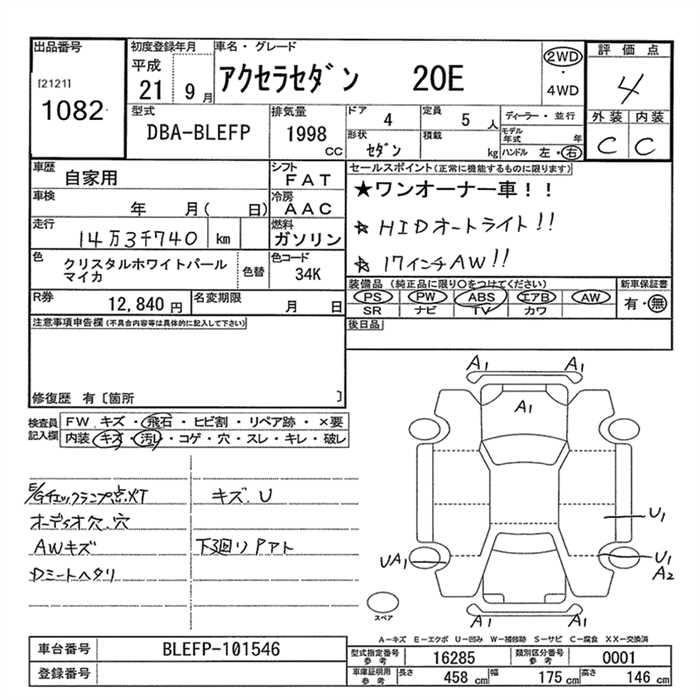 出品番号
[2121]
1082
初度登録年月
平成
21 9月
車名・グレード
アクセラセダン 20E
2WD
・
4WD
評価点
4
外装 内装
C C
型式
DBA-BLEFP
排気量
1998
CC
ドア
4
定員
5 人
ディーラー・並行
モデル年式 年
形状
セダン
積載
kg
ハンドル 左・右
車歴
自家用
シフト
FAT
車検
年 月( 日)
冷房
AAC
走行
14万3千740 km
燃料
ガソリン
色
クリスタルホワイトパール
マイカ
色替
色コード
34K
R券
12,840 円
名変期限
月 日
セールスポイント(正常に機能するものに限ります)
★ワンオーナー車!!
☆ HIDオートライト!!
☆ 17インチAW!!
装備品 (純正品に限り○をつけてください)
PS PW ABS エアB AW
SR ナビ TV カワ
新車保証書
有・無
後日品
注意事項申告欄(不具合内容等は具体的に記入して下さい)
修復歴 有〔箇所 〕
検査員
記入欄
FW キズ・飛石・ヒビ割・リペア跡・×要
内装・キズ・汚レ・コゲ・穴・スレ・キレ・破レ
E/Gチェックランプ点灯
キズ、U
オーディオ欠、穴
AWキズ
下廻りPアト
Dミートヘタリ
A1 A1
A1
U1
UA1
U1
A2
A1 A1
スペア
A−キズ E−エクボ U−凹み W−補修跡 S−サビ C−腐食 XX−交換済
車台番号
BLEFP-101546
登録番号
型式指定番号
参考
16285
類別区分番号
参考
0001
車庫証明用
参考
長さ 458 cm
幅 175 cm
高さ 146 cm